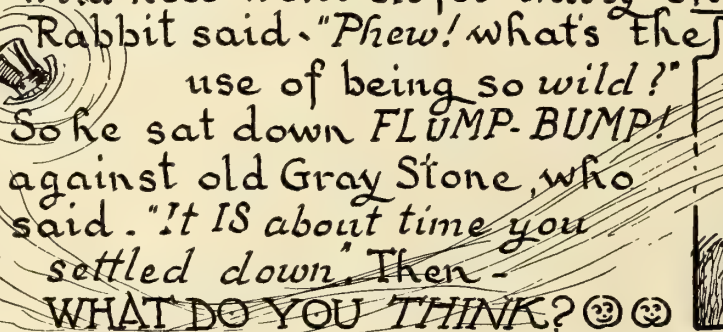 Rabbit said. "Phew! what's the
use of being so wild?"
So he sat down FLUMP-BUMP!
against old Gray Stone, who
said. "It IS about time you
settled down". Then -
WHAT DO YOU THINK?